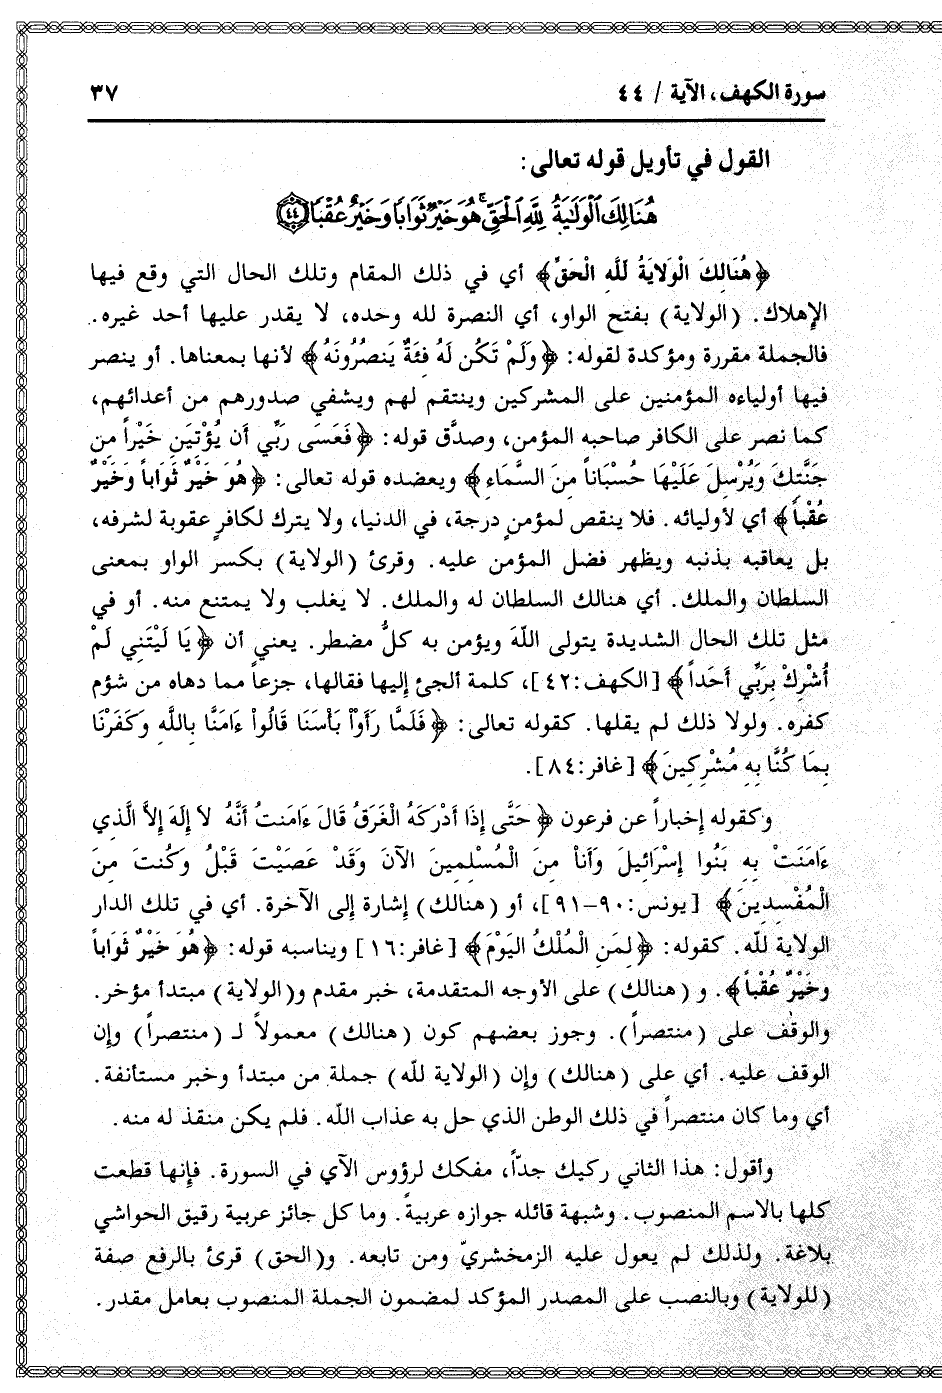 سورة الكهف، الآية / ٤٤
٣٧
القول في تأويل قوله تعالى:
هُنَالِكَ ٱلْوَلَٰيَةُ لِلَّهِ ٱلْحَقِّ ۚ هُوَ خَيْرٌ ثَوَابًا وَخَيْرٌ عُقْبًا ٤٤
﴿هُنَالِكَ الْوَلايَةُ لله الْحَقِّ﴾ أي في ذلك المقام وتلك الحال التي وقع فيها
الإهلاك. (الولاية) بفتح الواو، أي النصرة لله وحده، لا يقدر عليها أحد غيره.
فالجملة مقررة ومؤكدة لقوله: ﴿وَلَمْ تَكُن لَهُ فِئَةٌ يَنصُرُونَهُ﴾ لأنها بمعناها. أو ينصر
فيها أولياءه المؤمنين على المشركين وينتقم لهم ويشفي صدورهم من أعدائهم،
كما نصر على الكافر صاحبه المؤمن، وصدَّق قوله: ﴿فَعَسَى رَبِّي أَن يُؤْتِيَنِ خَيْراً مِن
جَنَّتِكَ وَيُرْسِلَ عَلَيْهَا حُسْبَاناً مِنَ السَّمَاءِ﴾ ويعضده قوله تعالى: ﴿هُوَ خَيْرٌ ثَوَاباً وَخَيْرٌ
عُقْباً﴾ أي لأوليائه. فلا ينقص لمؤمنٍ درجة، في الدنيا، ولا يترك لكافرٍ عقوبة لشرفه،
بل يعاقبه بذنبه ويظهر فضل المؤمن عليه. وقرئ (الولاية) بكسر الواو بمعنى
السلطان والملك. أي هنالك السلطان له والملك. لا يغلب ولا يمتنع منه. أو في
مثل تلك الحال الشديدة يتولى اللهَ ويؤمن به كلُّ مضطر. يعني أن ﴿يَا لَيْتَنِي لَمْ
أُشْرِكْ بِرَبِّي أَحَداً﴾ [الكهف:٤٢]، كلمة ألجئ إليها فقالها، جزعاً مما دهاه من شؤم
كفره. ولولا ذلك لم يقلها. كقوله تعالى: ﴿فَلَمَّا رَأَوْا بَأْسَنَا قَالُوا ءَامَنَّا بِاللَّهِ وَكَفَرْنَا
بِمَا كُنَّا بِهِ مُشْرِكِينَ﴾ [غافر:٨٤].
وكقوله إخباراً عن فرعون ﴿حَتَّى إِذَا أَدْرَكَهُ الْغَرَقُ قَالَ ءَامَنتُ أَنَّهُ لاَ إِلَهَ إِلاَّ الَّذِي
ءَامَنَتْ بِهِ بَنُوا إِسْرَائِيلَ وَأَنَا مِنَ الْمُسْلِمِينَ الآنَ وَقَدْ عَصَيْتَ قَبْلُ وَكُنتَ مِنَ
الْمُفْسِدِينَ﴾ [يونس:٩٠-٩١]، أو (هنالك) إشارة إلى الآخرة. أي في تلك الدار
الولاية لله. كقوله: ﴿لِمَنِ الْمُلْكُ الْيَوْمَ﴾ [غافر:١٦] ويناسبه قوله: ﴿هُوَ خَيْرٌ ثَوَاباً
وَخَيْرٌ عُقْباً﴾. و (هنالك) على الأوجه المتقدمة، خبر مقدم و(الولاية) مبتدأ مؤخر.
والوقف على (منتصراً). وجوز بعضهم كون (هنالك) معمولاً لـ (منتصراً) وإن
الوقف عليه. أي على (هنالك) وإن (الولاية لله) جملة من مبتدأ وخبر مستأنفة.
أي وما كان منتصراً في ذلك الوطن الذي حل به عذاب الله. فلم يكن منقذ له منه.
وأقول: هذا الثاني ركيك جداً، مفكك لرؤوس الآي في السورة. فإنها قطعت
كلها بالاسم المنصوب. وشبهة قائله جوازه عربيةً. وما كل جائز عربية رقيق الحواشي
بلاغة. ولذلك لم يعول عليه الزمخشريّ ومن تابعه. و(الحق) قرئ بالرفع صفة
(للولاية) وبالنصب على المصدر المؤكد لمضمون الجملة المنصوب بعامل مقدر.